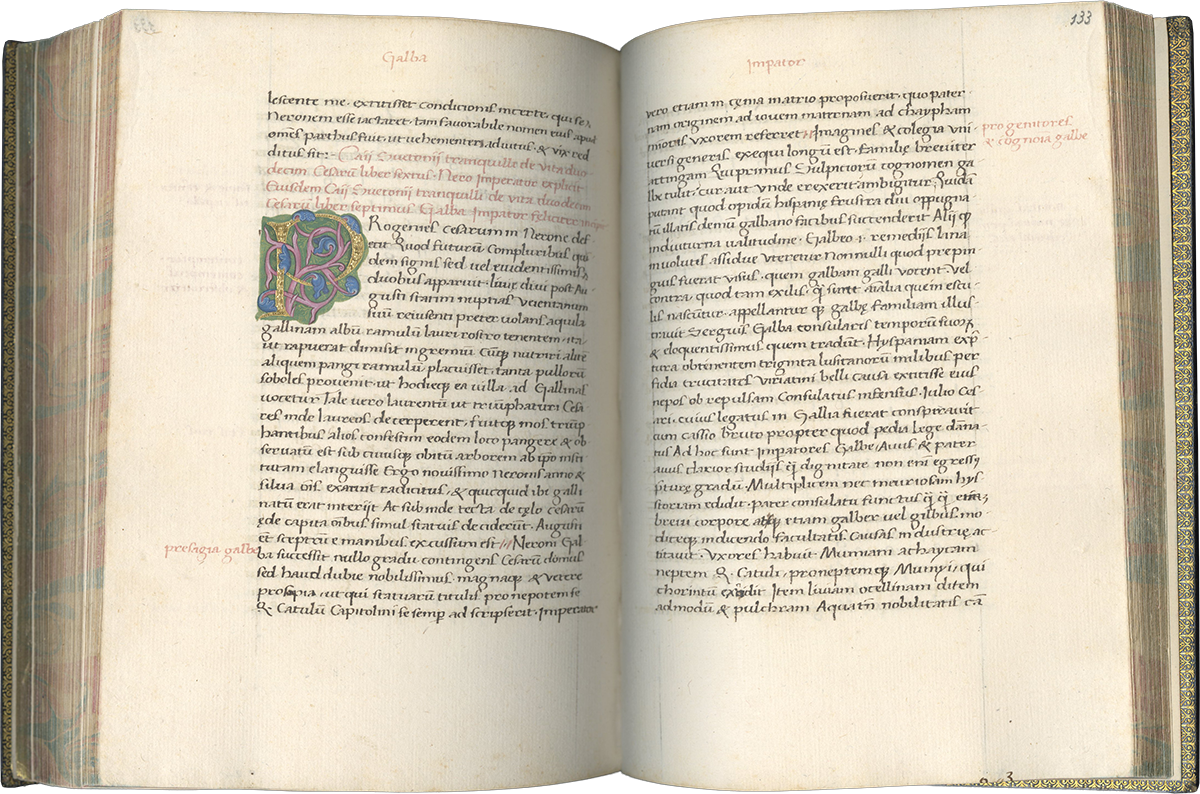 Galba
lescente me. extitisset condicionis incerte, qui se
Neronem esse iactaret. tam favorabile nomen eius apud
om̃es parthus fuit. ut vehementer adiutus. & vix red
ditus sit:
Caij Suetonij tranquille de vita duo
decim Cesarũ liber sextus. Nero Imperator explicit
Eiusdem Caij Suetonij tranquilli de vita duodecim
Cesarũ liber septimus Galba Impator feliciter incipit
PRogenies Cesarum in Nerone def
ecit Quod futurũ Compluribus qui
dem signis sed vel evidentissimis
duobus apparuit. livię divi post Au
gusti statim nuptias Veientanum
suũ. reiusenti preter volans aquila
gallinam albũ ramulũ lauri rostro tenentem. ita
ut rapuerat dimisit ingremiũ Cũq̃ nutriri alitẽ
aliquem pangi ramulũ placuisset. tanta pullorũ
soboles provenit. ut hodieq̃ ea villa ad Gallinas
vocetur Tale vero lauretũ ut triũphaturi Cesa
res inde laureas decerperent. fuitq̃ mos triũp
hantibus alios confestim eodem loco pangere & ob
servatũ est sub cuiusq̃ obitũ arborem ab ipo insti
tutam elanguisse Ergo novissimo Neronis anno &
silva õis exaruit radicitus, & quicquid ibi galli
natũ erat interijt Ac subinde tecta de cęlo Cesarũ
ęde capita oĩbus simul statuis deciderũt. Augusti
et sceptrũ e manibus excussum est // Neroni Gal
presagia galbe
ba successit nullo gradu contingens Cesarũ domus
sed haud dubie nobilissimus magnaq̃ & vetere
prosapia. ut qui statuarũ titulis pronepotem se
Q. Catulũ Capitolini se semp̃ ad scripserit. Imperator
133
Impator
vero etiam in cęma matrio proposuerit. quo pater
nam originem ad iovem maternam ad chaypham
minotis vxorem referret // Imagines & colegia vni
progenitores
& cognoĩa galbe
versi generis exequi longũ est. familię breviter
attingam Qui primus Sulpitiorũ cognomen ga
lbe tulit. cur aut vnde ex exerit ambigitur Quidã
putant quod opidũ hispanię frustra diu oppugna
rũ illatis demũ galbano facibus suctenderit Alij q̃
indiuturna valitudine. Galbeo .i. remedijs lana
involutis assidue vteretur Nonnulli quod prepin
guis fuerat visus. quem galbam galli vocent. Vel
contra. quod tam exilis. q̃ sunt aĩalia quem escu
lis nascuntur. appellantur q̃ galbę familiam illus
travit Sergius Galba consularis temporũ suoꝝ
& eloquentissimus quem tradũt. Hyspaniam exp̃
tura obtenentem triginta lusitanorũ milibus per
fidia trucitates Viriatini belli causa extitisse eius
nepos ob repulsam Consulatus infensus. Iulio Ces
ari. cuius legatus in Gallia fuerat conspiravit
cum Cassio bruto propter quod pedia lege dãna
tus Ad hoc sunt Impatores Galbe, Avus & pater
avus clarior studijs q̃ dignitate non eñi egressꝯ
p̃turę gradũ. Multiplicem nec incuriosam hys
storiam edidit. pater consulatu functus q̃ q̃
brevi corpore etiam galber vel gilbus mo
diceq̃ indicendo facultatis Causas industrię ac
titavit. Vxores habuit Mumiam achaycam
neptem Q. Catuli, proneptemq̃ Mumyi, qui
chorintũ excĩdit Item liviam ocellinam ditem
admodũ & pulchram Aquatñ nobilitatis cã
3